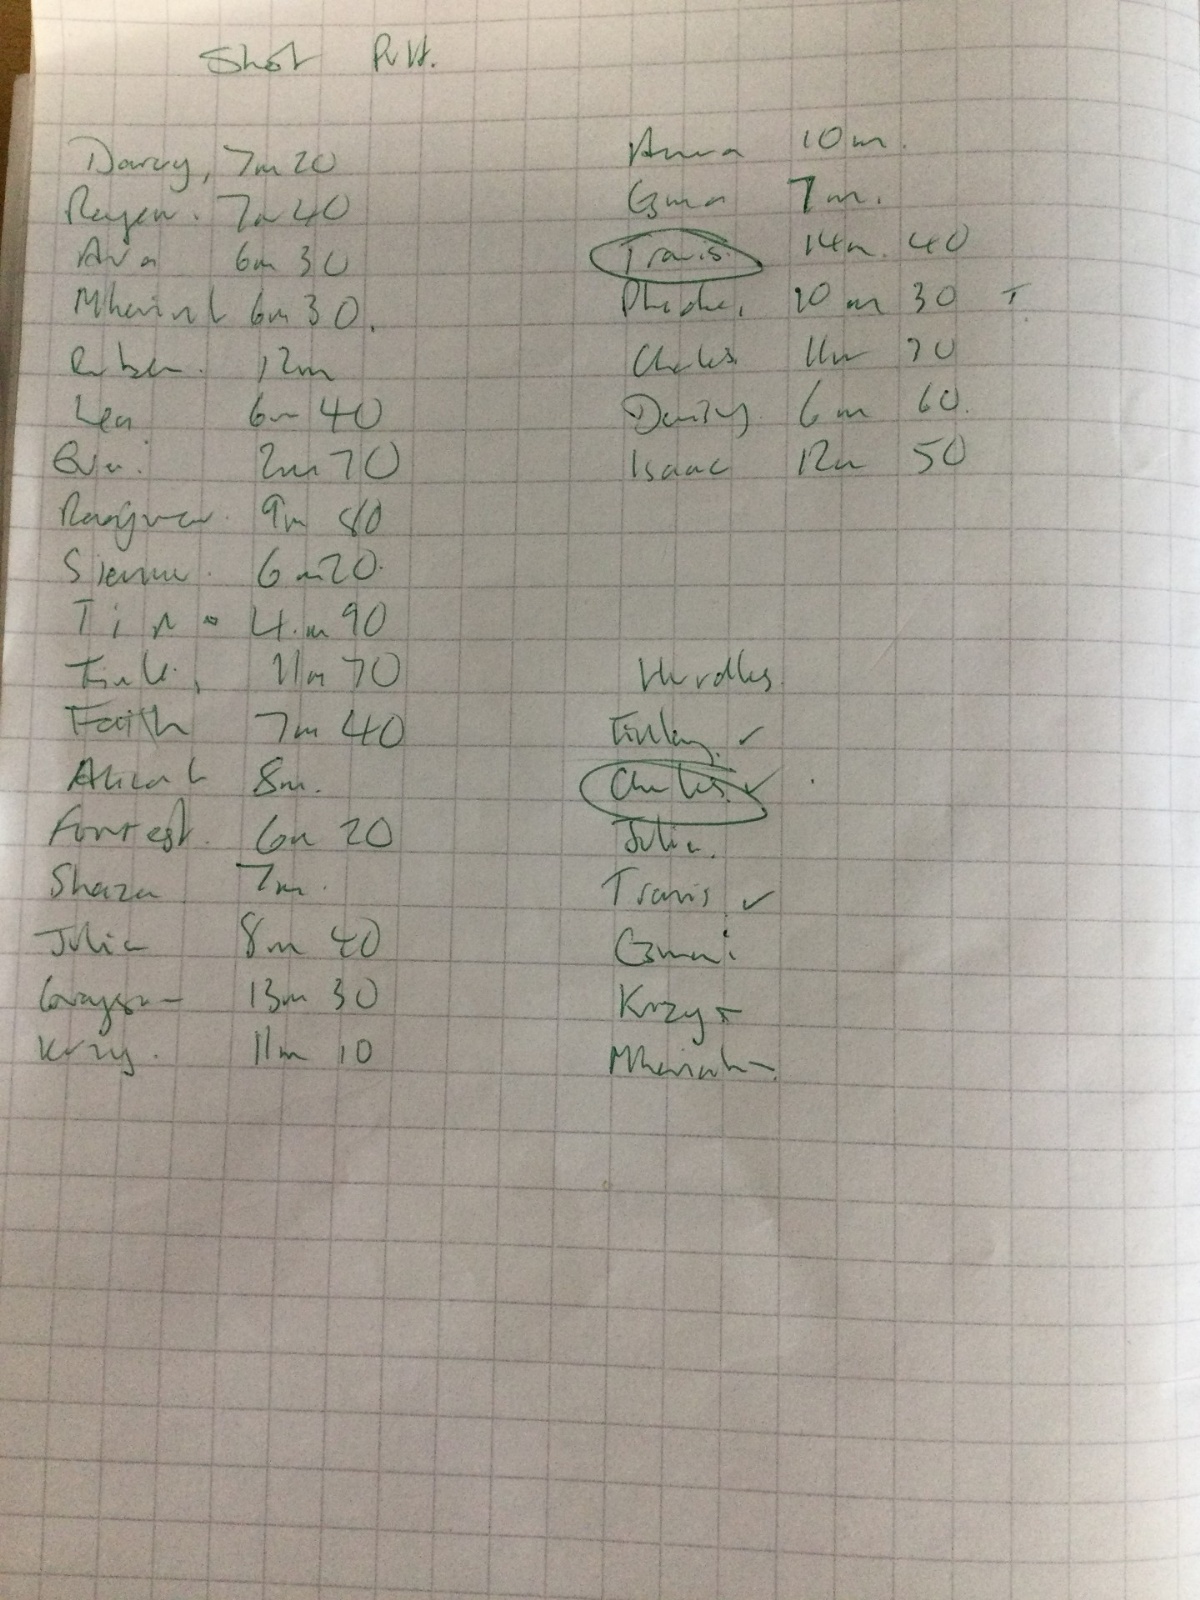 Shot Put.
Darcy, 7m 20
Rayen. 7m 40
Ava 6m 30
Mhairah 6m 30.
Ruben. 12m
Lea 6m 40
2m 70
9m 80
Sienna. 6m 20.
Tina 4.m 90
11m 70
Faith 7m 40
8m.
Forrest. 6m 20
Shaza 7m.
Julia 8m 40
Grayson 13m 30
Krzy. 11m 10
Anna 10m.
7m.
Travis. 14m. 40
10m 30
Charles. 11m
6m 60.
Isaac 12m 50
Hurdles.
Finlay. ✓
Charles. ✓
Julia.
Travis ✓
Krzy
Mhairah